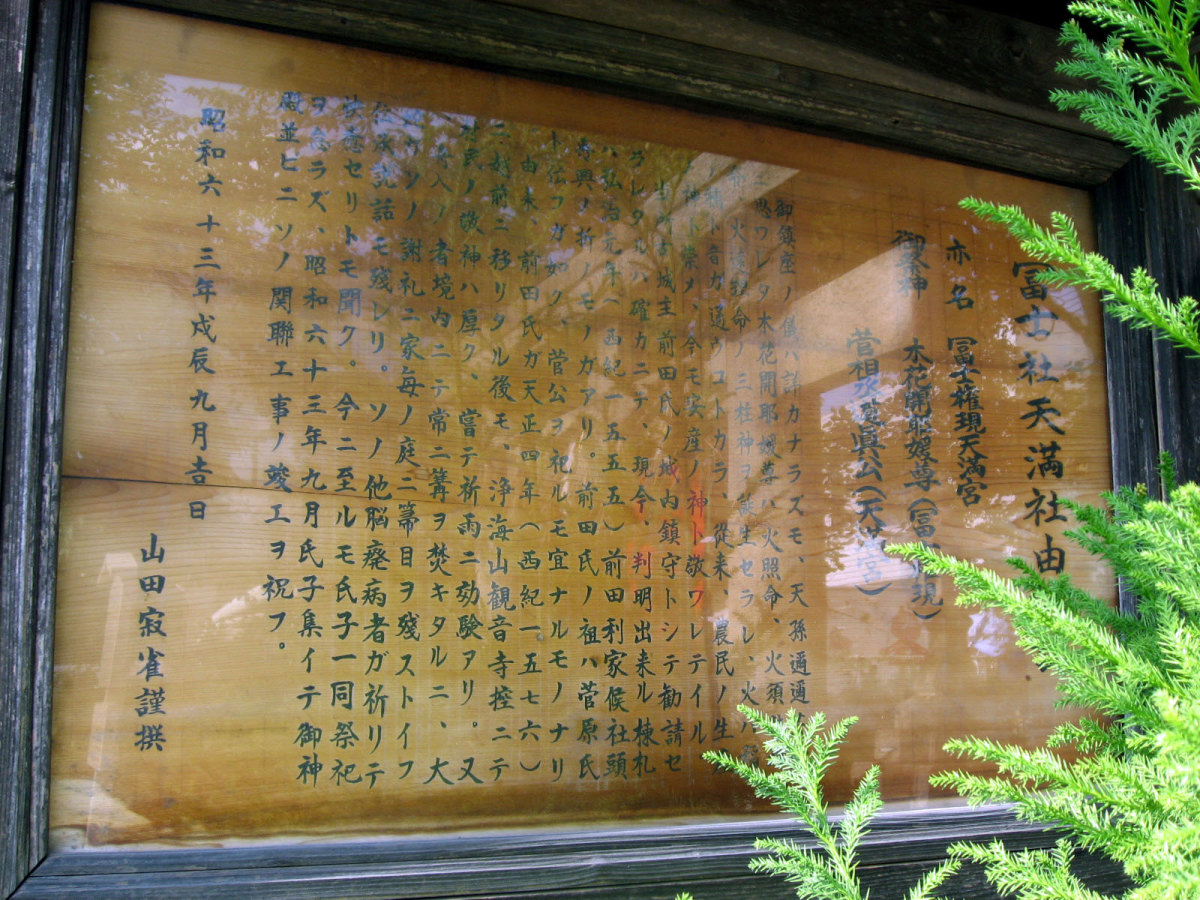 冨士社天満社由
亦名 冨士権現天満宮
御祭神 木花開耶媛尊(冨 現)
菅相丞道真公(天満宮)
御鎮座ノ儀ハ詳カナラズモ、天孫邇邇
思ワレタ木花開耶媛尊ハ火照命、火須
命、火遠理命ノ三柱神ヲ誕生セラレ、火ノ
ト音ガ通ウコトカラ、従来、農民ノ生
神ト崇メ、今モ安産ノ神ト敬ワレテイル
城主前田氏ノ城内鎮守トシテ勧請セ
ラレタルハ確カニテ、現今、判明出来ル棟札
ハ、弘治元年(西紀一五五五)前田利家候社頭
再興ノ折ノモノガアリ。前田氏ノ祖ハ菅原氏
ト伝フガ如ク、菅公ヲ祀ルモ宜ナルモノナリ
由来、前田氏ガ天正四年(西紀一五七六)
ニ越前ニ移リタル後モ、浄海山観音寺控ニテ
村民ノ敬神ハ厚ク、嘗テ祈雨ニ効験アリ。又
入ノ者境内ニテ常ニ篝ヲ焚キタルニ、大
ソノ謝礼ニ家毎ノ庭ニ箒目ヲ残ストイフ
伝承説話モ残レリ。ソノ他脳癈病者ガ祈リテ
快癒セリトモ聞ク。今ニ至ルモ氏子一同祭祀
ヲ怠ラズ、昭和六十三年九月氏子集イテ御神
殿並ビニソノ関聯工事ノ竣工ヲ祝フ。
昭和六十三年戊辰九月吉日
山田寂雀謹撰